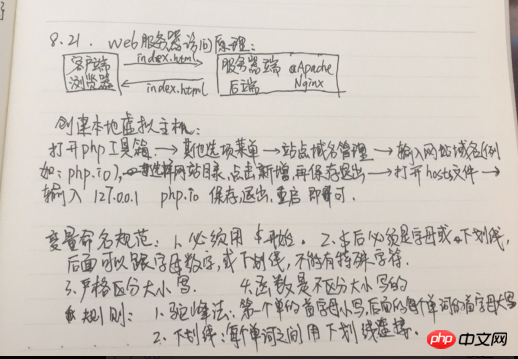 8.21. web服务器访问原理:
客户端 index.html 服务器端 @Apache
浏览器 index.html 后端 Nginx
创建本地虚拟主机:
打开php工具箱→其他选项菜单→站点域名管理→输入网站域名(例
如: php.io),选择网站目录,点击新增,再保存退出→打开hosts文件→
输入 127.0.0.1 php.io 保存,退出,重启即可.
变量命名规范: 1、必须用$开始. 2、$后必须是字母或下划线,
后面可以跟字母数字,或下划线,不能有特殊字符.
3、严格区分大小写. 4.函数是不区分大小写的
规则: 1、驼峰法:第一个单的首字母小写,后面的每个单词的首字母大写
2、下划线:每个单词之间用下划线连接.
php 中文网